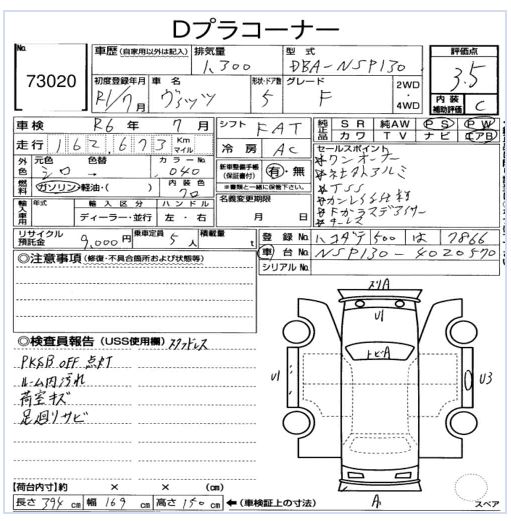 Dプラコーナー
No.
73020
車歴(自家用以外は記入)
排気量
1,300
型式
DBA-NSP130
評価点
3.5
初度登録年月
R1/7月
車名
ヴィッツ
形状・ドア数
5
グレード
F
2WD
・
4WD
内装
補助評価
C
車検 R6年 7月
シフト FAT
純正品
SR 純AW PS PW
カワ TV ナビ エアB
走行 162,673 Km マイル
冷房 AC
外色
元色 色替 カラーNo.
シロ → 040
燃料
ガソリン・軽油・( )
内装色
クロ
新車整備手帳
(保証書付)
有・無
※書類と一緒に保管下さい。
セールスポイント
ワンオーナー
輸入車用
年式 輸入区分 ハンドル
ディーラー・並行 左・右
名義変更期限
月 日
リサイクル
預託金
9,000円
乗車定員
5人
積載量
t
登録No. ハコダテ 500 は 7866
車台No. NSP130-4020570
シリアルNo.
◎注意事項(修復・不具合箇所および状態等)
◎検査員報告(USS使用欄) スタッドレス
PKSB OFF 点灯
ルーム内汚れ
荷室キズ
足廻りサビ
スリA
U1
トビA
U1
U3
A
スペア
【荷台内寸】約 × × (cm)
長さ 394 cm 幅 169 cm 高さ 150 cm ←(車検証上の寸法)